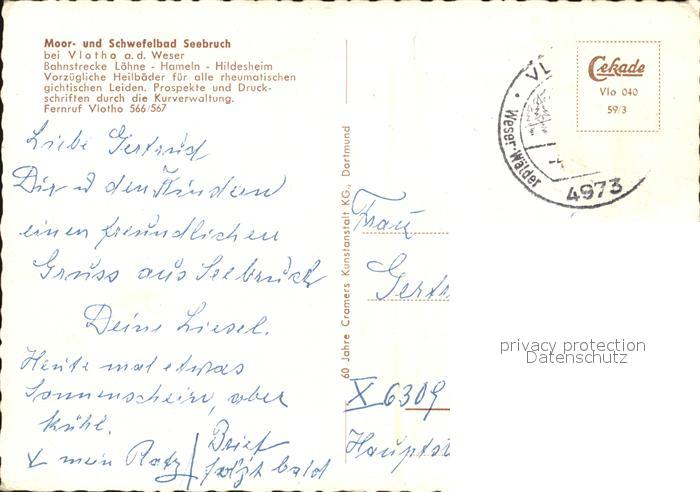 Moor- und Schwefelbad Seebruch
bei Vlotho a. d. Weser
Bahnstrecke Löhne - Hameln - Hildesheim
Vorzügliche Heilbäder für alle rheumatischen
gichtischen Leiden. Prospekte und Druck-
schriften durch die Kurverwaltung.
Fernruf Vlotho 566/567
Liebe Gertrud
Dir u den Kindern
einen freundlichen
Gruss aus Seebruch
Deine Liesel.
Heute mal etwas
Sonnenschein, aber
kühl.
X mein Platz
Brief
folgt bald
60 Jahre Cramers Kunstanstalt KG., Dortmund
Cekade
Vlo 040
59/3
VL
Weser-Wälder
4973
Frau
Gertr
X 6309
Hauptst
privacy protection
Datenschutz